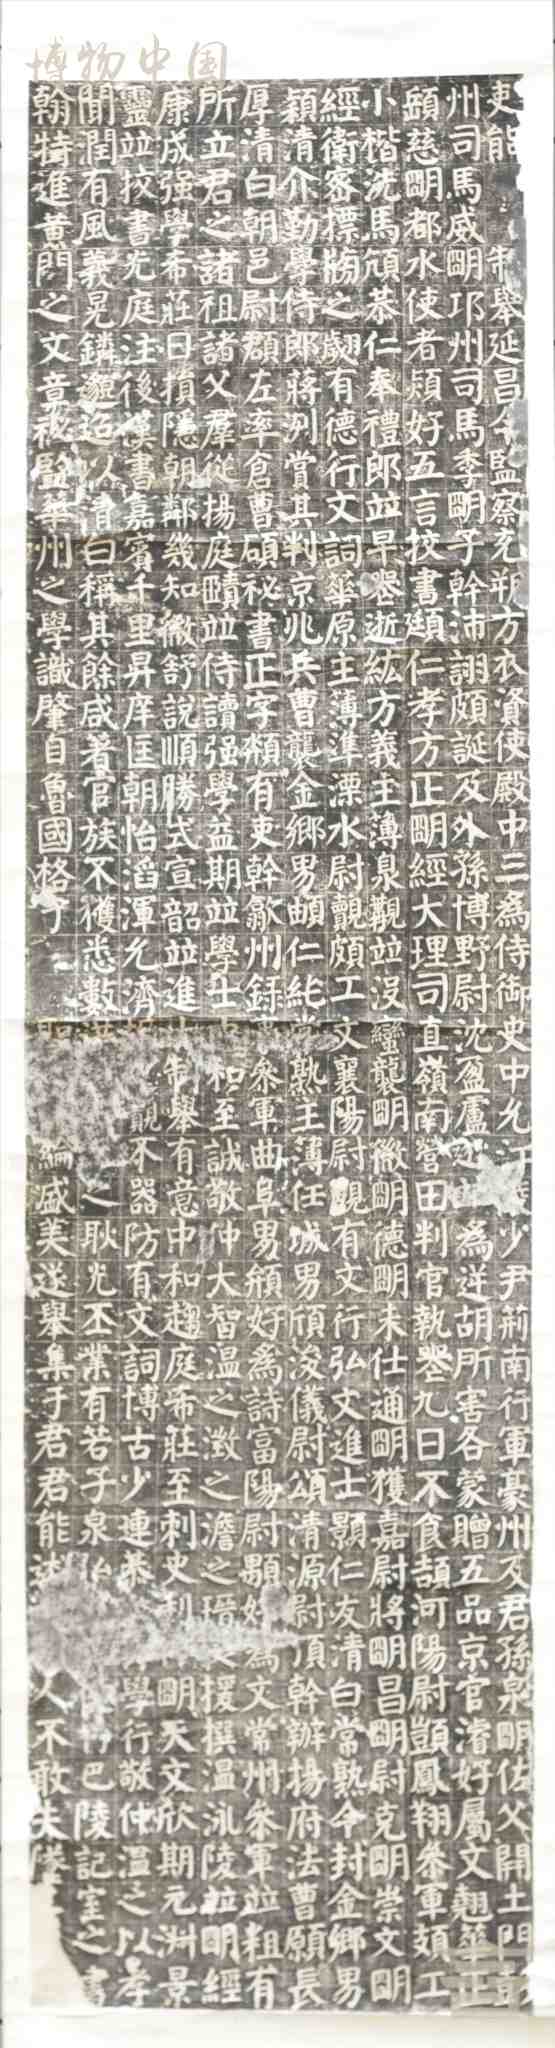 博物中国
吏能 制舉延昌令監察充朔方衣資使殿中三爲侍御史中允江陵少尹荊南行軍豪州及君孫泉明佐父開土門彭
州司馬威明邛州司馬季明子幹沛詡頗誕及外孫博野尉沈盈盧逖 爲逆胡所害各蒙贈五品京官濬好屬文翹華正
頲慈明都水使者熲好五言挍書頲仁孝方正明經大理司直嶺南營田判官執喪九日不食頡河陽尉顗鳳翔參軍頍工
小楷洗馬頎恭仁奉禮郎竝早卷逝紘方義主薄泉觀竝没蠻襲明徽明德明未仕通明獲嘉尉將明昌明尉克明崇文明
經衛密摽牓之翽有德行文詞華原主薄準溧水尉覿頗工文襄陽尉覿有文行弘文進士顥仁友清白常熟令封金鄉男
穎清介勤學侍郎蔣洌賞其判京兆兵曹襲金鄉男頔仁純常熟主薄任城男頎浚儀尉頌清源尉頂幹辦揚府法曹願長
厚清白朝邑尉頵左率倉曹碩祕書正字頰有吏幹歙州録事參軍曲阜男頟好爲詩富陽尉顒好爲文常州參軍竝粗有
所立君之諸祖諸父羣從揚庭賾竝侍讀强學益期竝學士 和至誠敬仲大智溫之澂之澹之瑨 援撰溫泳陵竝明經
康成强學希莊日損隱朝鄰幾知微舒說順勝式宣韶竝進 制舉有意中和趨庭希莊至刺史 明天文欣期元淋景
靈竝挍書光庭注後漢書嘉賓千里昇庠匡朝怡滔渾允濟 覿不器防有文詞博古少連恭 學行敬仲溫之以孝
聞潤有風義晃鏻邈超以清白稱其餘咸著官族不獲悉數 之耿光丕業有若子泉 巴陵記室之書
翰特進黃門之文章祕監華州之學識肇自魯國格于 聖 綸盛美遂舉集于君君能 人不敢失墜